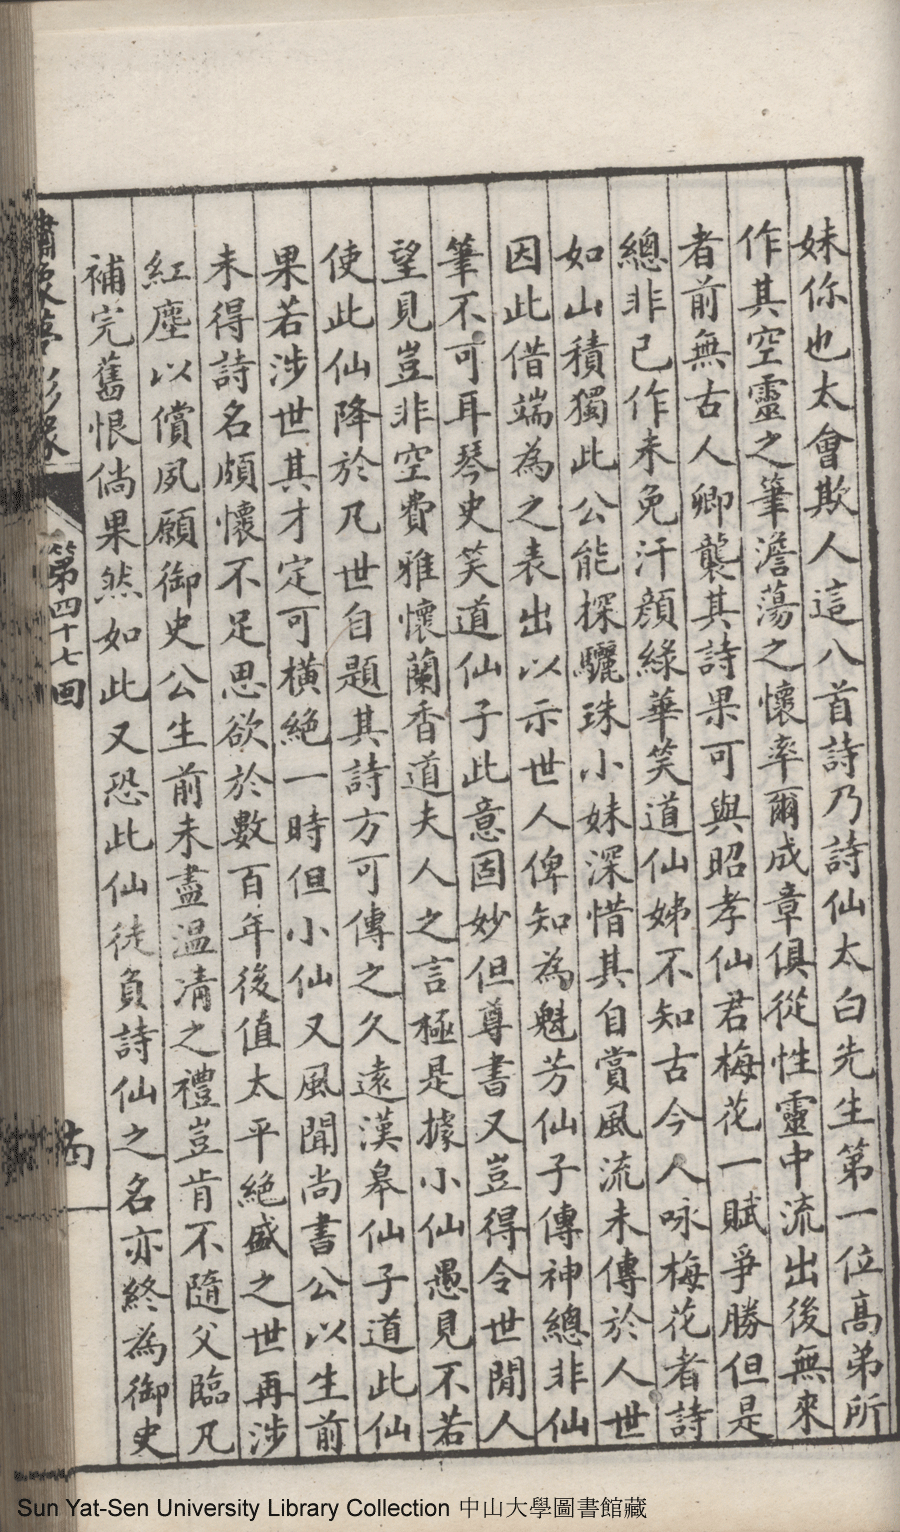 妹你也太會欺人這八首詩乃詩仙太白先生第一位高弟所
作其空靈之筆澹蕩之懷率爾成章俱從性靈中流出後無來
者前無古人卿襲其詩果可與昭孝仙君梅花一賦爭勝但是
總非己作未免汗顏綠華笑道仙姊不知古今人咏梅花者詩
如山積獨此公能探驪珠小妹深惜其自賞風流未傳於人世
因此借端為之表出以示世人俾知為魁芳仙子傳神總非仙
筆不可耳琴史笑道仙子此意固妙但尊書又豈得令世閒人
望見豈非空費雅懷蘭香道夫人之言極是據小仙愚見不若
使此仙降於凡世自題其詩方可傳之久遠漢皋仙子道此仙
果若涉世其才定可橫絕一時但小仙又風聞尚書公以生前
未得詩名頗懷不足思欲於數百年後值太平絕盛之世再涉
紅塵以償夙願御史公生前未盡溫凊之禮豈肯不隨父臨凡
補完舊恨倘果然如此又恐此仙徒負詩仙之名亦終為御史
第四十七回
Sun Yat-Sen University Library Collection 中山大學圖書館藏